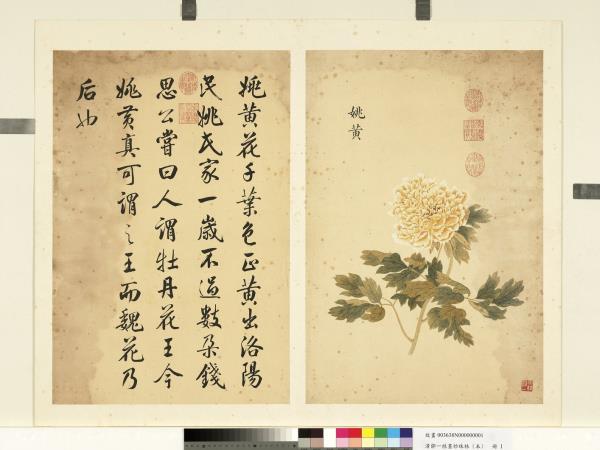 姚黃
姚黃花千葉色正黃出洛陽
民姚氏家一歲不過數朵錢
思公嘗曰人謂牡丹花王今
姚黃真可謂之王而魏花乃
后也
故畫 003638N000000001
清鄒一桂畫 冊 1